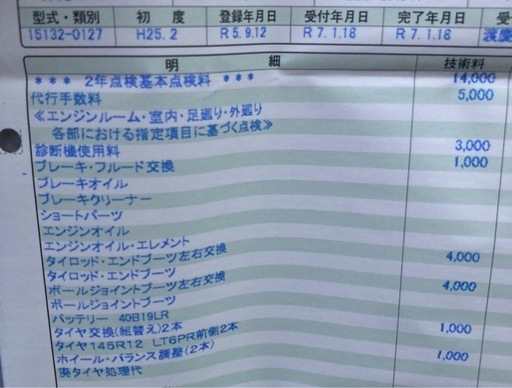 型式・類別 初度 登録年月日 受付年月日 完了年月日
15132-0127 H25.2 R 5.9.12 R 7.1.18 R 7.1.18
明細 技術料
＊＊＊ 2年点検基本点検料 ＊＊＊ 14,000
代行手数料 5,000
≪エンジンルーム・室内・足廻り・外廻り
各部における指定項目に基づく点検≫
診断機使用料 3,000
ブレーキ・フルード交換 1,000
ブレーキオイル
ブレーキクリーナー
ショートパーツ
エンジンオイル
エンジンオイル・エレメント
タイロッド・エンドブーツ左右交換 4,000
タイロッド・エンドブーツ
ボールジョイントブーツ左右交換 4,000
ボールジョイントブーツ
バッテリー 40B19LR
タイヤ交換(組替え)2本 1,000
タイヤ145R12 LT6PR前側2本
ホイール・バランス調整(2本) 1,000
廃タイヤ処理代